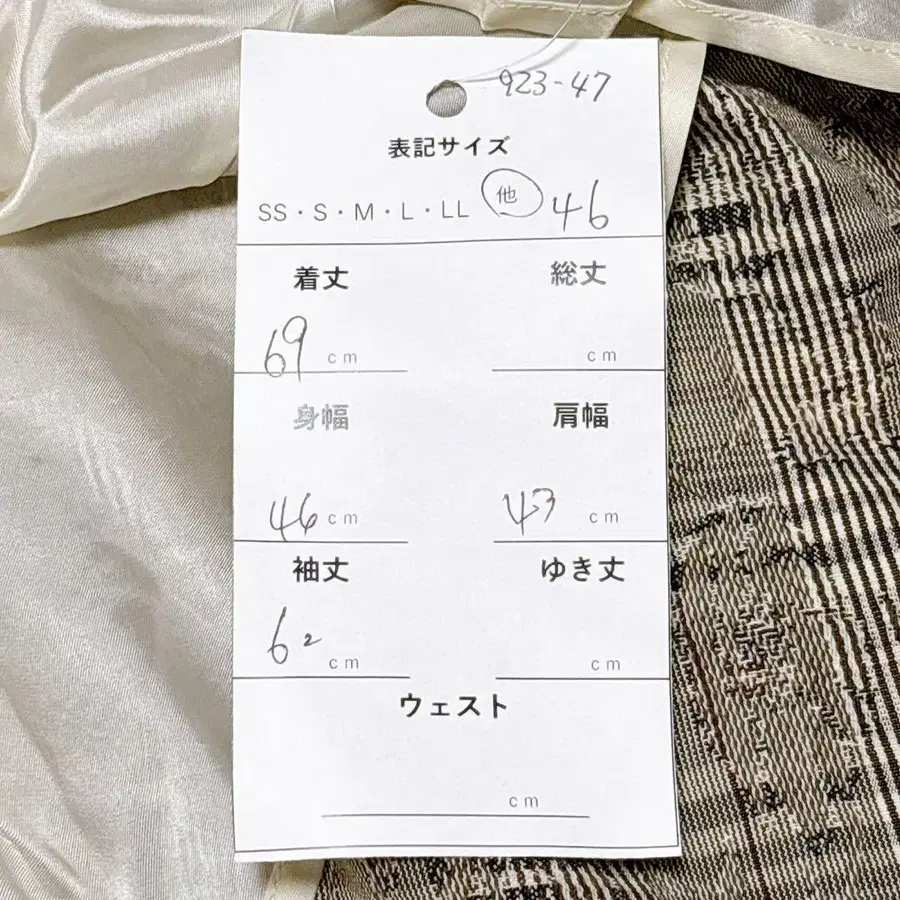 923-47
表記サイズ
SS・S・M・L・LL 他 46
着丈 総丈
69 cm cm
身幅 肩幅
46 cm 43 cm
袖丈 ゆき丈
62 cm cm
ウェスト
cm